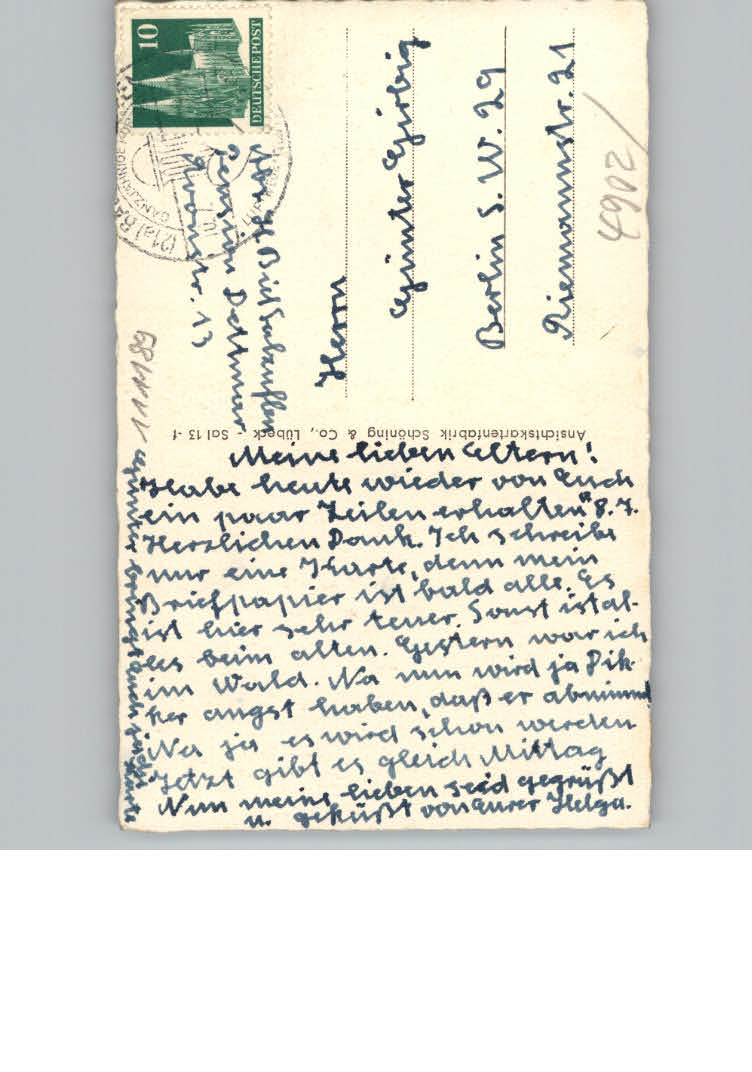 Meine lieben Eltern!
Habe heute wieder von Euch
ein paar Zeilen erhalten "8.7.
Herzlichen Dank. Ich schreibe
nur eine Karte, denn mein
Briefpapier ist bald alle. Es
ist hier sehr teuer. Sonst ist al-
les beim alten. Gestern war ich
im Wald. Na nun wird ja Dik-
ker angst haben, daß er abnimmt
Na ja es wird schon werden
Jetzt gibt es gleich Mittag
Nun meine lieben seid gegrüßt
u. geküßt von Eurer Helga.
Günter bringt Euch jede Karte
Ansichtskartenfabrik Schöning & Co., Lübeck - Sal 13 -f
10
DEUTSCHE POST
(21a) BA
Pension Dettmar
Roonstr. 13
Herrn
Günter Girbig
Berlin S.W. 29
Riemannstr. 21
4902/